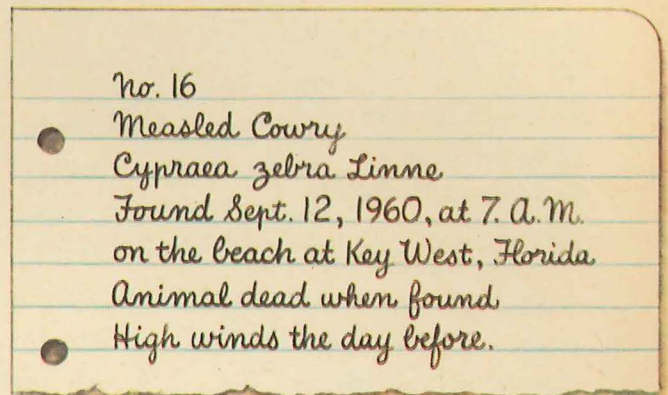 No. 16
Measled Cowry
Cypraea zebra Linne
Found Sept. 12, 1960, at 7. A.M.
on the beach at Key West, Florida
Animal dead when found
High winds the day before.